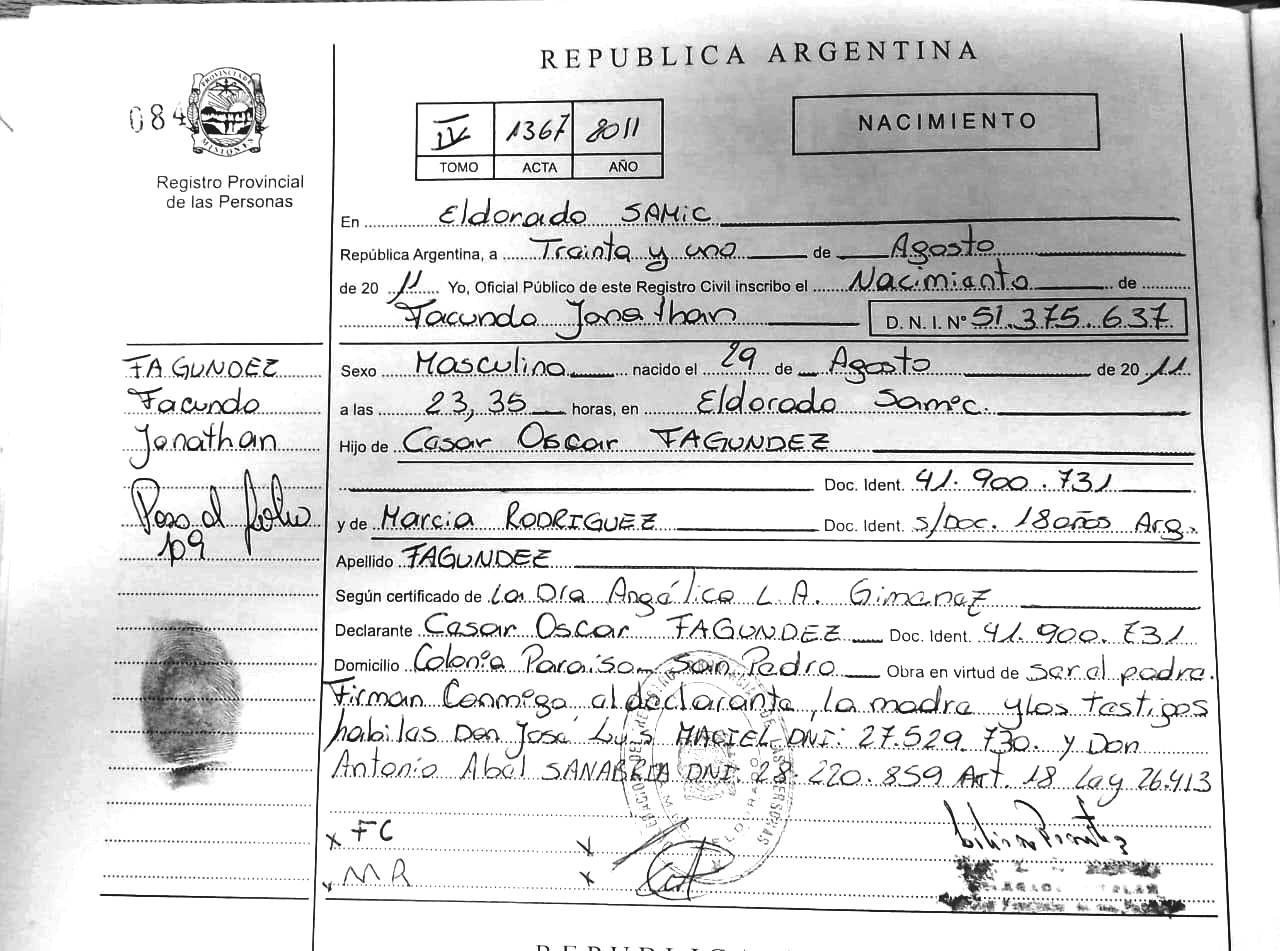 REPUBLICA ARGENTINA
084
PROVINCIA DE MISIONES
Registro Provincial
de las Personas
IV 1367 2011
TOMO ACTA AÑO
NACIMIENTO
En Eldorado SAMIC
República Argentina, a Treinta y uno de Agosto
de 2011 Yo, Oficial Público de este Registro Civil inscribo el Nacimiento de
Facundo Jonathan D. N. I. Nº 51.375.637
FAGUNDEZ
Facundo
Jonathan
Paso al folio
109
Sexo Masculino nacido el 29 de Agosto de 2011
a las 23,35 horas, en Eldorado Samic.
Hijo de Cesar Oscar FAGUNDEZ
Doc. Ident. 41.900.731
y de Marcia RODRIGUEZ Doc. Ident. s/Doc. 18años Arg.
Apellido FAGUNDEZ
Según certificado de La Dra Angélica L.A. Gimenez
Declarante Cesar Oscar FAGUNDEZ Doc. Ident. 41.900.731
Domicilio Colonia Paraiso San Pedro Obra en virtud de ser el padre.
Firman Conmigo el declarante, la madre y los testigos
habiles Don José Luis MACIEL DNI: 27.529.730. y Don
Antonio Abel SANABRIA DNI: 28.220.859 Art. 18 Ley 26.413
x FC x
x MR x